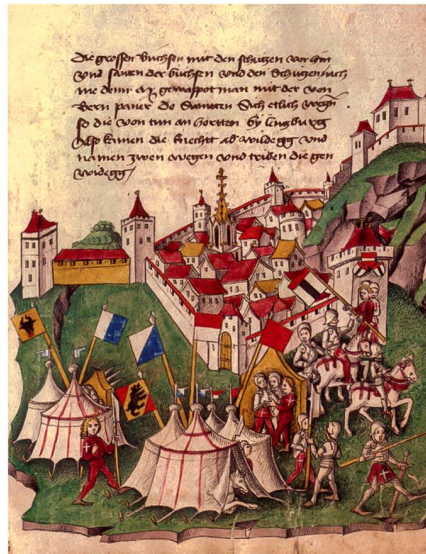 die grossen büchsen mit den schützen vor hin
vnd santen der büchsen vnd den schützen nach
wie denn gewappot man mit der von
Bern paner do Sumoten Sich etlich wegn
so die von tun an horten by lentzburg
Also kamen die knecht ab wildegg vnd
namen zwen wegen vnd triben die gen
wildegg